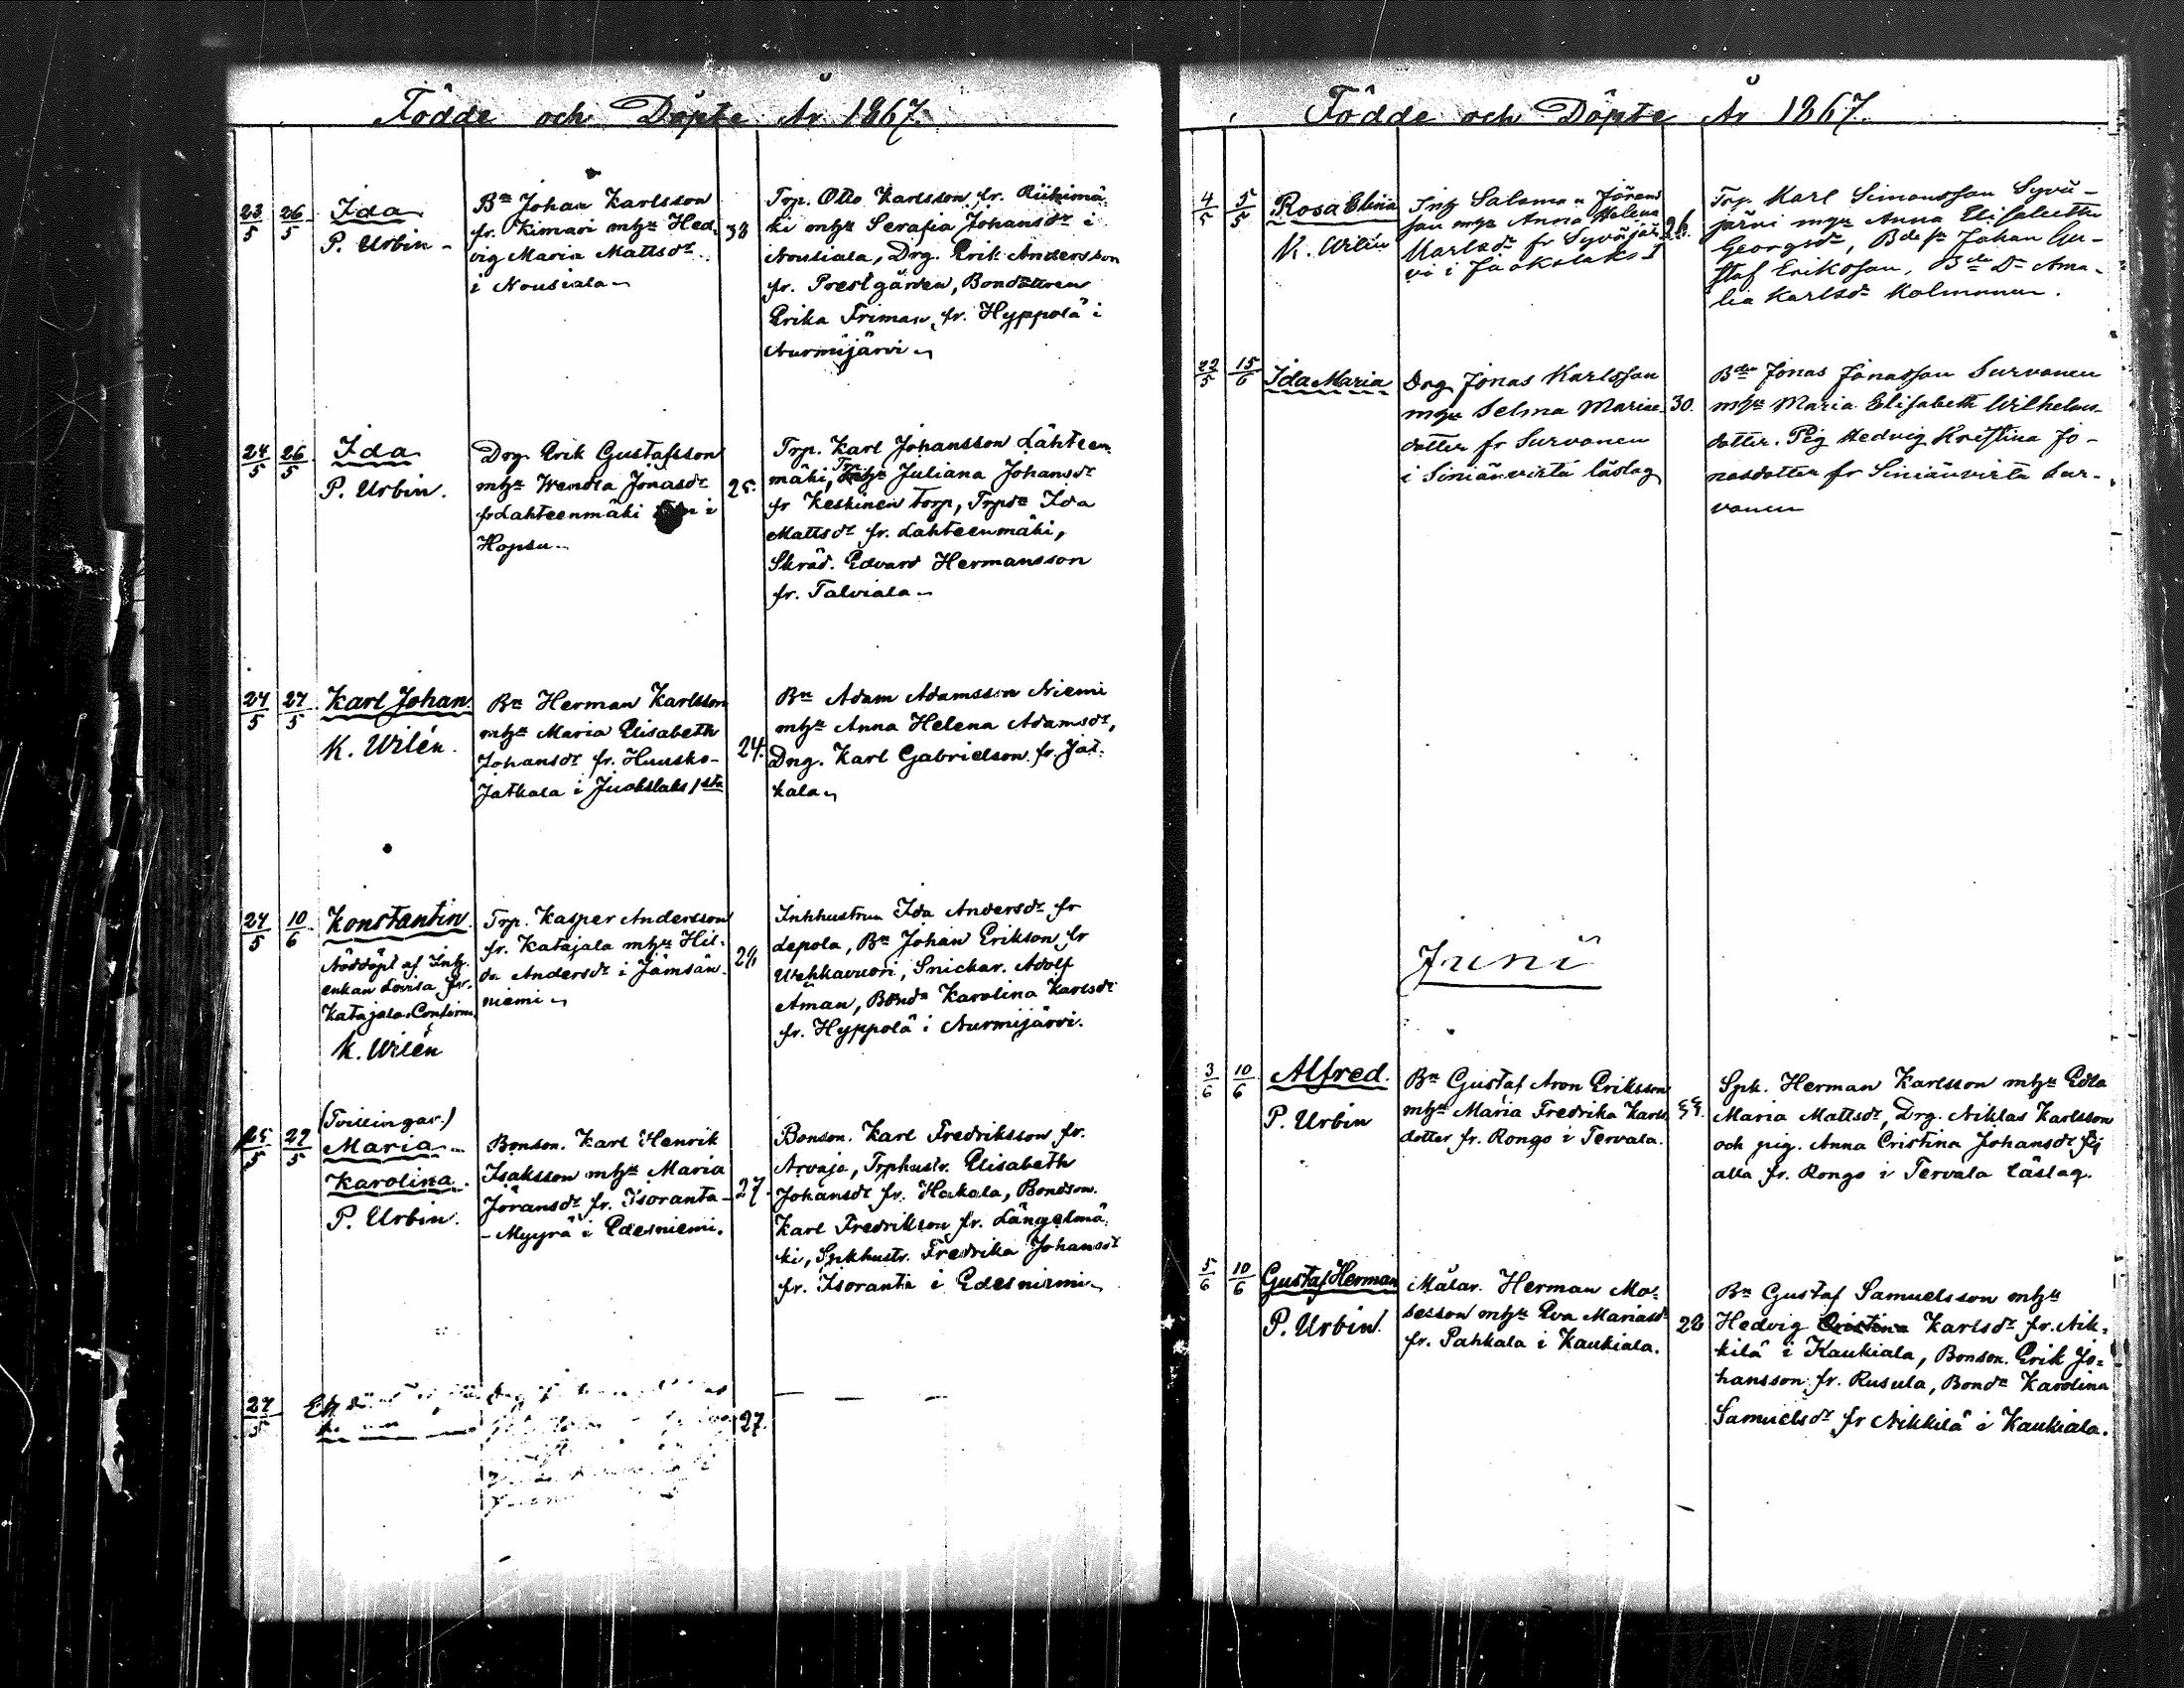 Födde och Döpte År 1867.
23/5 26/5 Ida
P. Urbin
Bn Johan Karlsson
fr. Kimari mhu Hed-
vig Maria Mattsdr
i Nousiala
33
Trp. Otto Karlsson fr. Riihimä-
ki mhu Serafia Johansdr i
Nousiala, Drg. Erik Andersson
fr. Prestgården, Bondottren
Erika Friman, fr. Hyppölä i
Nurmijärvi
24/5 26/5 Ida
P. Urbin.
Drg. Erik Gustafsson
mhu Wendla Jonasdr
fr Lahteenmäki i
Hopsu
25.
Trp. Karl Johansson Lähteen-
mäki, Juliana Johansdr
fr Keskinen torp, Trpdr Ida
Mattsdr fr. Lahteenmäki,
Skräd. Edvard Hermansson
fr. Talviala
24/5 27/5 Karl Johan.
K. Wilén.
Bn Herman Karlsson
mhu Maria Elisabeth
Johansdr fr. Huusko-
Jatkala i Juokslaks 1sta
24.
Bn Adam Adamsson Niemi
mhu Anna Helena Adamsdr,
Dng. Karl Gabrielson fr. Jat-
kala
24/5 10/6 Konstantin
Nöddöpt af Inh.
enkan Lovisa fr.
Katajala. Confirm.
K. Wilén
Trp. Kasper Andersson
fr. Katajala mhu Hil-
da Andersdr i Jämsän-
niemi
Inhhustrun Ida Andersdr fr
depola, Bn Johan Erikson fr
Uuhkavuori, Snickar. Adolf
Åman, Bondn Karolina Karlsdr
fr. Hyppölä i Nurmijärvi.
(Tvillingar.)
25/5 29/5 Maria
Karolina.
P. Urbin.
Bonson. Karl Henrik
Isaksson mhu Maria
Jöransdr fr. Isoranta-
-Myyrä i Edesniemi.
27.
Bonson. Karl Fredriksson fr.
Arvaja, Trphustr. Elisabeth
Johansdr fr. Hakala, Bondson.
Karl Fredrikson fr. Längelmä-
ki, Spkhustr. Fredrika Johansdr
fr. Isoranta i Edesniemi
27/5
27.
Födde och Döpte År 1867.
4/5 5/5 Rosa Elina
K. Wilén
Inh Salomon Jörans
son mhu Anna Helena
Karlsdr fr Syväjär-
vi i Juokslaks I
26.
Trp. Karl Simonsson Syvä-
järvi mhu Anna Elisabeth
Georgsdr, Bde sn Johan Gu-
staf Eriksson, Bde Dr Ama-
lia Karlsdr Kolmonen.
22/5 15/6 Ida Maria
Dng Jonas Karlsson
mhu Selma Mariae
dotter fr Survonen
i Siniänvirta läslag
30.
Bde Jonas Jonasson Survonen
mhu Maria Elisabeth Wilhelms-
dotter. Pig Hedvig Kristina Jo-
nasdotter fr Siniänvirta Sur-
vonen
Juni
3/6 10/6 Alfred.
P. Urbin
Bn Gustaf Aron Eriksson
mhu Maria Fredrika Karls-
dotter fr. Rongo i Tervala.
Spk. Herman Karlsson mhu Edla
Maria Mattsdr, Drg. Niklas Karlsson
och pig. Anna Cristina Johansdr
alla fr. Rongo i Tervala läslag.
5/6 10/6 Gustaf Herman
P. Urbin.
Målar. Herman Mo-
sesson mhu Eva Mariasdr
fr. Pahkala i Kaukiala.
28
Bn Gustaf Samuelsson mhu
Hedvig Cristina Karlsdr fr. Nik-
kilä i Kaukiala, Bonson. Erik Jo-
hansson fr. Rusula, Bondn Karolina
Samuelsdr fr Nikkilä i Kaukiala.